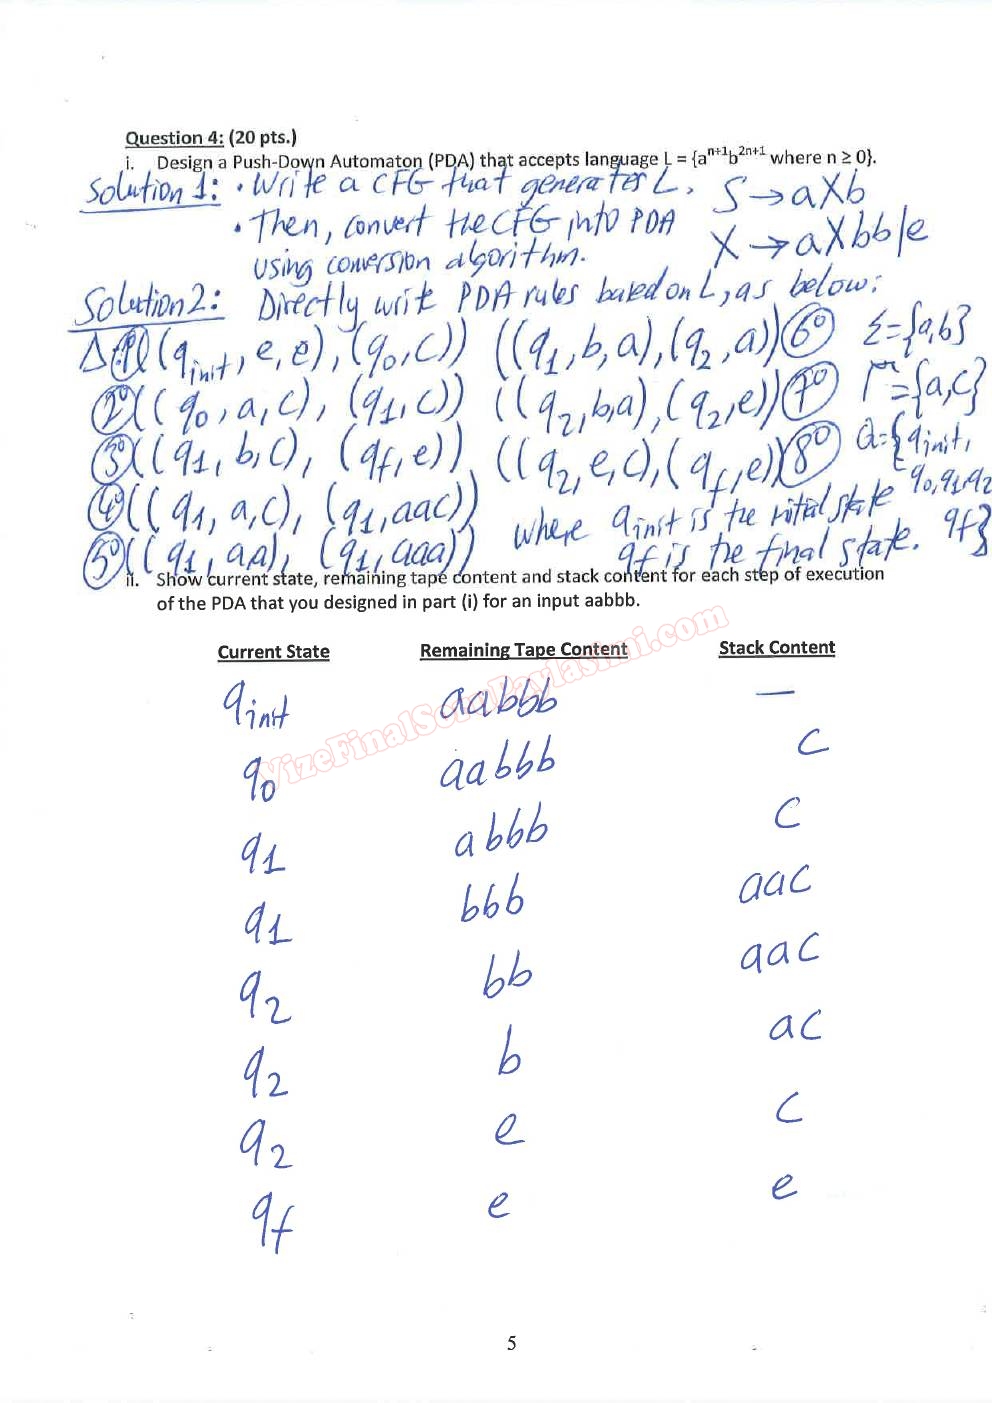 Question 4: (20 pts.)
i. Design a Push-Down Automaton (PDA) that accepts language L = {aⁿ⁺¹b²ⁿ⁺¹ where n ≥ 0}.
Solution 1: • Write a CFG that generates L. S → aXb
• Then, convert the CFG into PDA X → aXbb|e
using conversion algorithm.
Solution 2: Directly write PDA rules based on L, as below:
Δ: 1) ((q_init, e, e), (q0, c)) ((q1, b, a), (q2, a)) 6) Σ = {a,b}
2) ((q0, a, c), (q1, c)) ((q2, b, a), (q2, e)) 7) Γ = {a,c}
3) ((q1, b, c), (qf, e)) ((q2, e, c), (qf, e)) 8) Q = {q_init,
4) ((q1, a, c), (q1, aac)) where q_init is the initial state q0, q1, q2
5) ((q1, a, a), (q1, aaa)) qf is the final state. qf}
ii. Show current state, remaining tape content and stack content for each step of execution
of the PDA that you designed in part (i) for an input aabbb.
Current State Remaining Tape Content Stack Content
q_init aabbb —
q0 aabbb c
q1 abbb c
q1 bbb aac
q2 bb aac
q2 b ac
q2 e c
qf e e
VizeFinalSoruPaylasimi.com
5